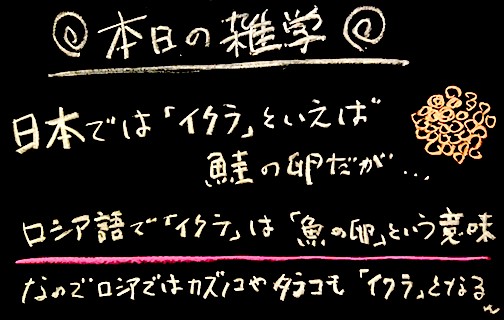 本日の雑学
日本では「イクラ」といえば
鮭の卵だが…
ロシア語で「イクラ」は「魚の卵」という意味
なのでロシアではカズノコやタラコも「イクラ」となる